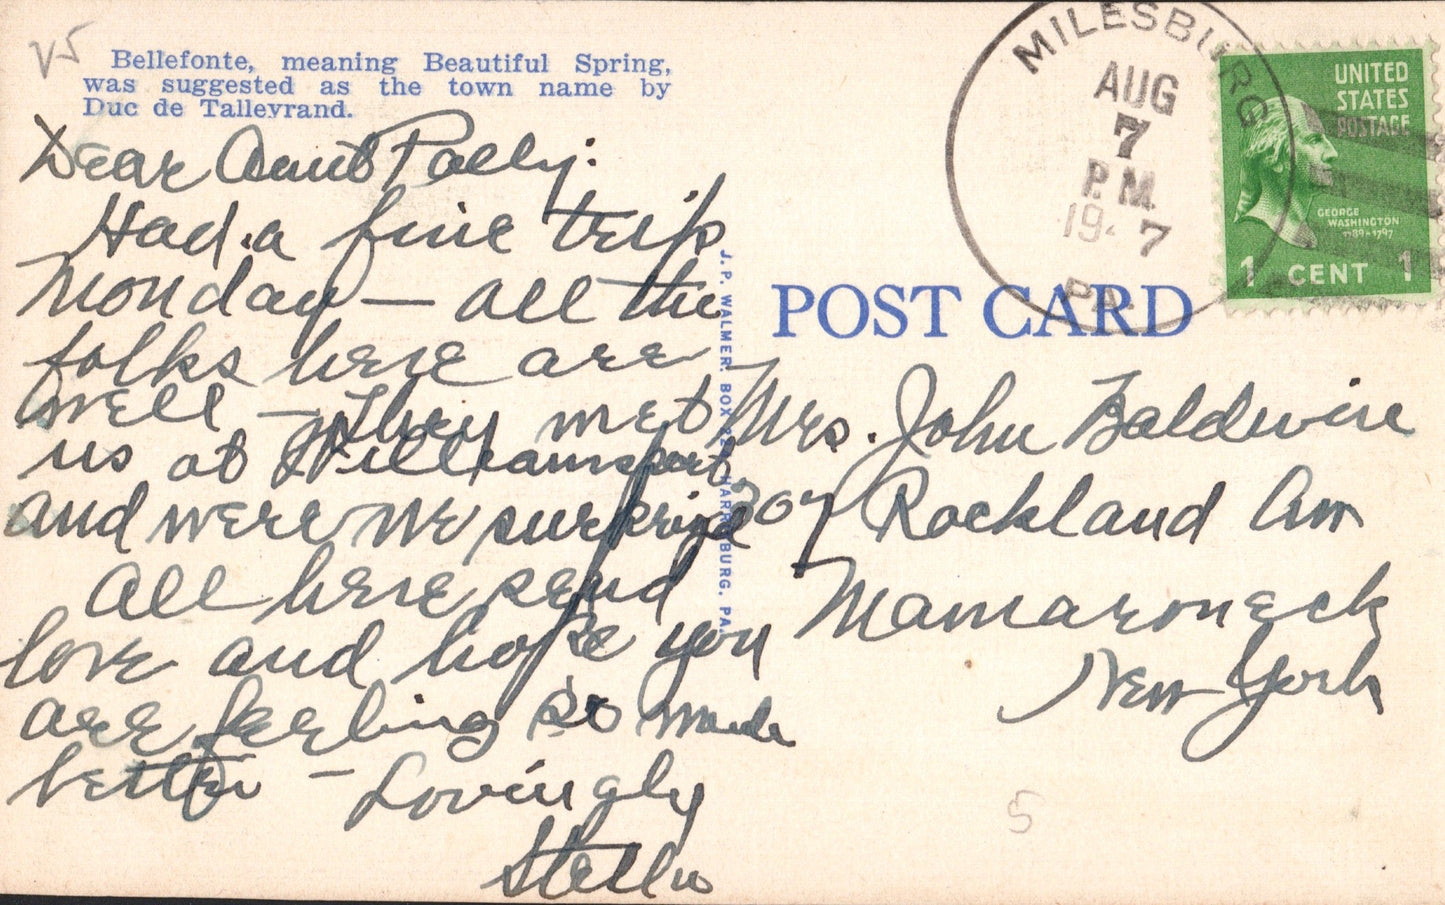 V5
Bellefonte, meaning Beautiful Spring,
was suggested as the town name by
Duc de Talleyrand.
Dear Aunt Polly:
Had a fine trip
Monday — all the
folks here are
well — They met
us at Williamsport
and were we surprised
All here send
love and hope you
are feeling so much
better — Lovingly
Stella
J. P. WALMER, BOX 224 HARRISBURG, PA.
MILESBURG
AUG
7
P.M.
1947
PA.
UNITED
STATES
POSTAGE
GEORGE
WASHINGTON
1789-1797
1 CENT 1
POST CARD
Mrs. John Baldwin
307 Rockland Ave
Mamaroneck
New York
5